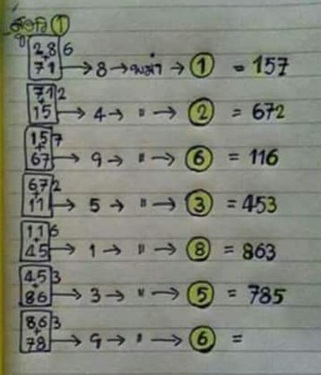 ①
286
+
71 → 8 → → ① = 157
712
+
15 → 4 → " → ② = 672
157
+
67 → 9 → " → ⑥ = 116
672
+
11 → 5 → " → ③ = 453
116
+
45 → 1 → " → ⑧ = 863
453
+
86 → 3 → " → ⑤ = 785
863
+
78 → 9 → " → ⑥ =